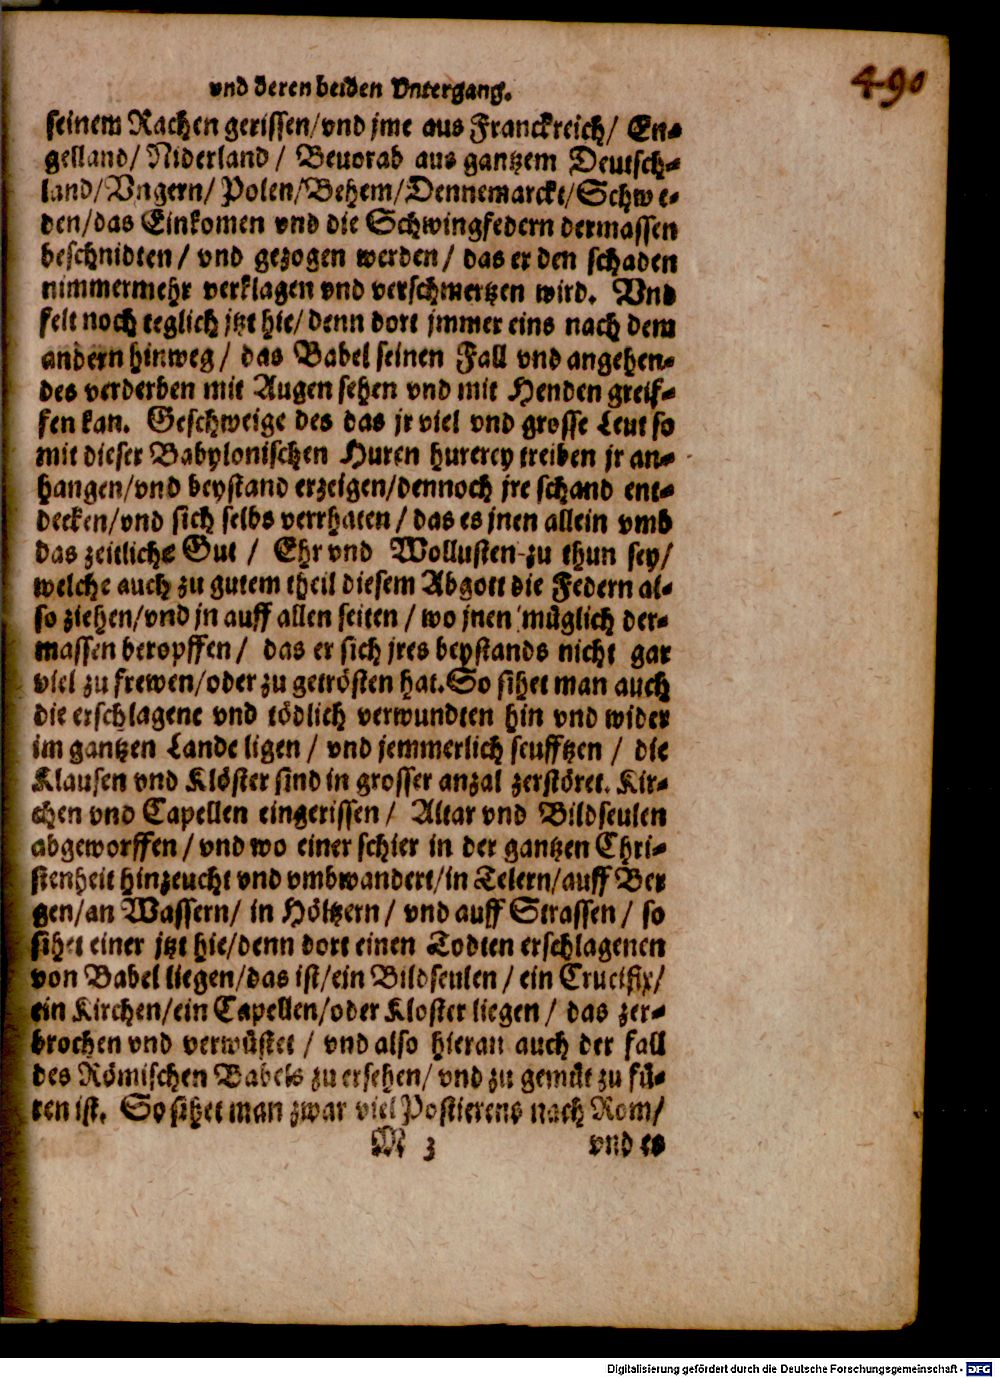 490
vnd deren beiden Vntergang.
seinem Rachen gerissen/vnd jme aus Franckreich/ En-
gelland/ Niderland/ Beuorab aus gantzem Deutsch-
land/Vngern/ Polen/Behem/Dennemarckt/Schwe-
den/das Einkomen vnd die Schwingfedern dermassen
beschnidten/ vnd gezogen werden/ das er den schaden
nimmermehr verklagen vnd verschmertzen wird. Vnd
felt noch teglich jtzt hie/ denn dort jmmer eins nach dem
andern hinweg/ das Babel seinen Fall vnd angehen-
des verderben mit Augen sehen vnd mit Henden greif-
fen kan. Geschweige des das jr viel vnd grosse Leut so
mit dieser Babylonischen Huren hurerey treiben jr an-
hangen/vnd beystand erzeigen/dennoch jre schand ent-
decken/vnd sich selbs verrhaten/ das es jnen allein vmb
das zeitliche Gut/ Ehr vnd Wollusten zu thun sey/
welche auch zu gutem theil diesem Abgott die Federn al-
so ziehen/vnd jn auff allen seiten/ wo jnen müglich der-
massen beropffen/ das er sich jres beystands nicht gar
viel zu frewen/oder zu getrösten hat. So sihet man auch
die erschlagene vnd tödlich verwundten hin vnd wider
im gantzen Lande ligen/ vnd jemmerlich seufftzen/ die
Klausen vnd Klöster sind in grosser anzal zerstöret. Kir-
chen vnd Capellen eingerissen/ Altar vnd Bildseulen
abgeworffen/ vnd wo einer schier in der gantzen Chri-
stenheit hinzeucht vnd vmbwandert/in Telern/auff Ber
gen/an Wassern/ in Höltzern/ vnd auff Strassen/ so
sihet einer jtzt hie/denn dort einen Todten erschlagenen
von Babel liegen/das ist/ein Bildseulen/ ein Crucifix/
ein Kirchen/ein Capellen/oder Kloster liegen/ das zer-
brochen vnd verwüstet/ vnd also hieran auch der fall
des Römischen Babels zu ersehen/ vnd zu gemüt zu fü-
ren ist. So sihet man zwar viel Postierens nach Rom/
M 3 vnd es
Digitalisierung gefördert durch die Deutsche Forschungsgemeinschaft - DFG